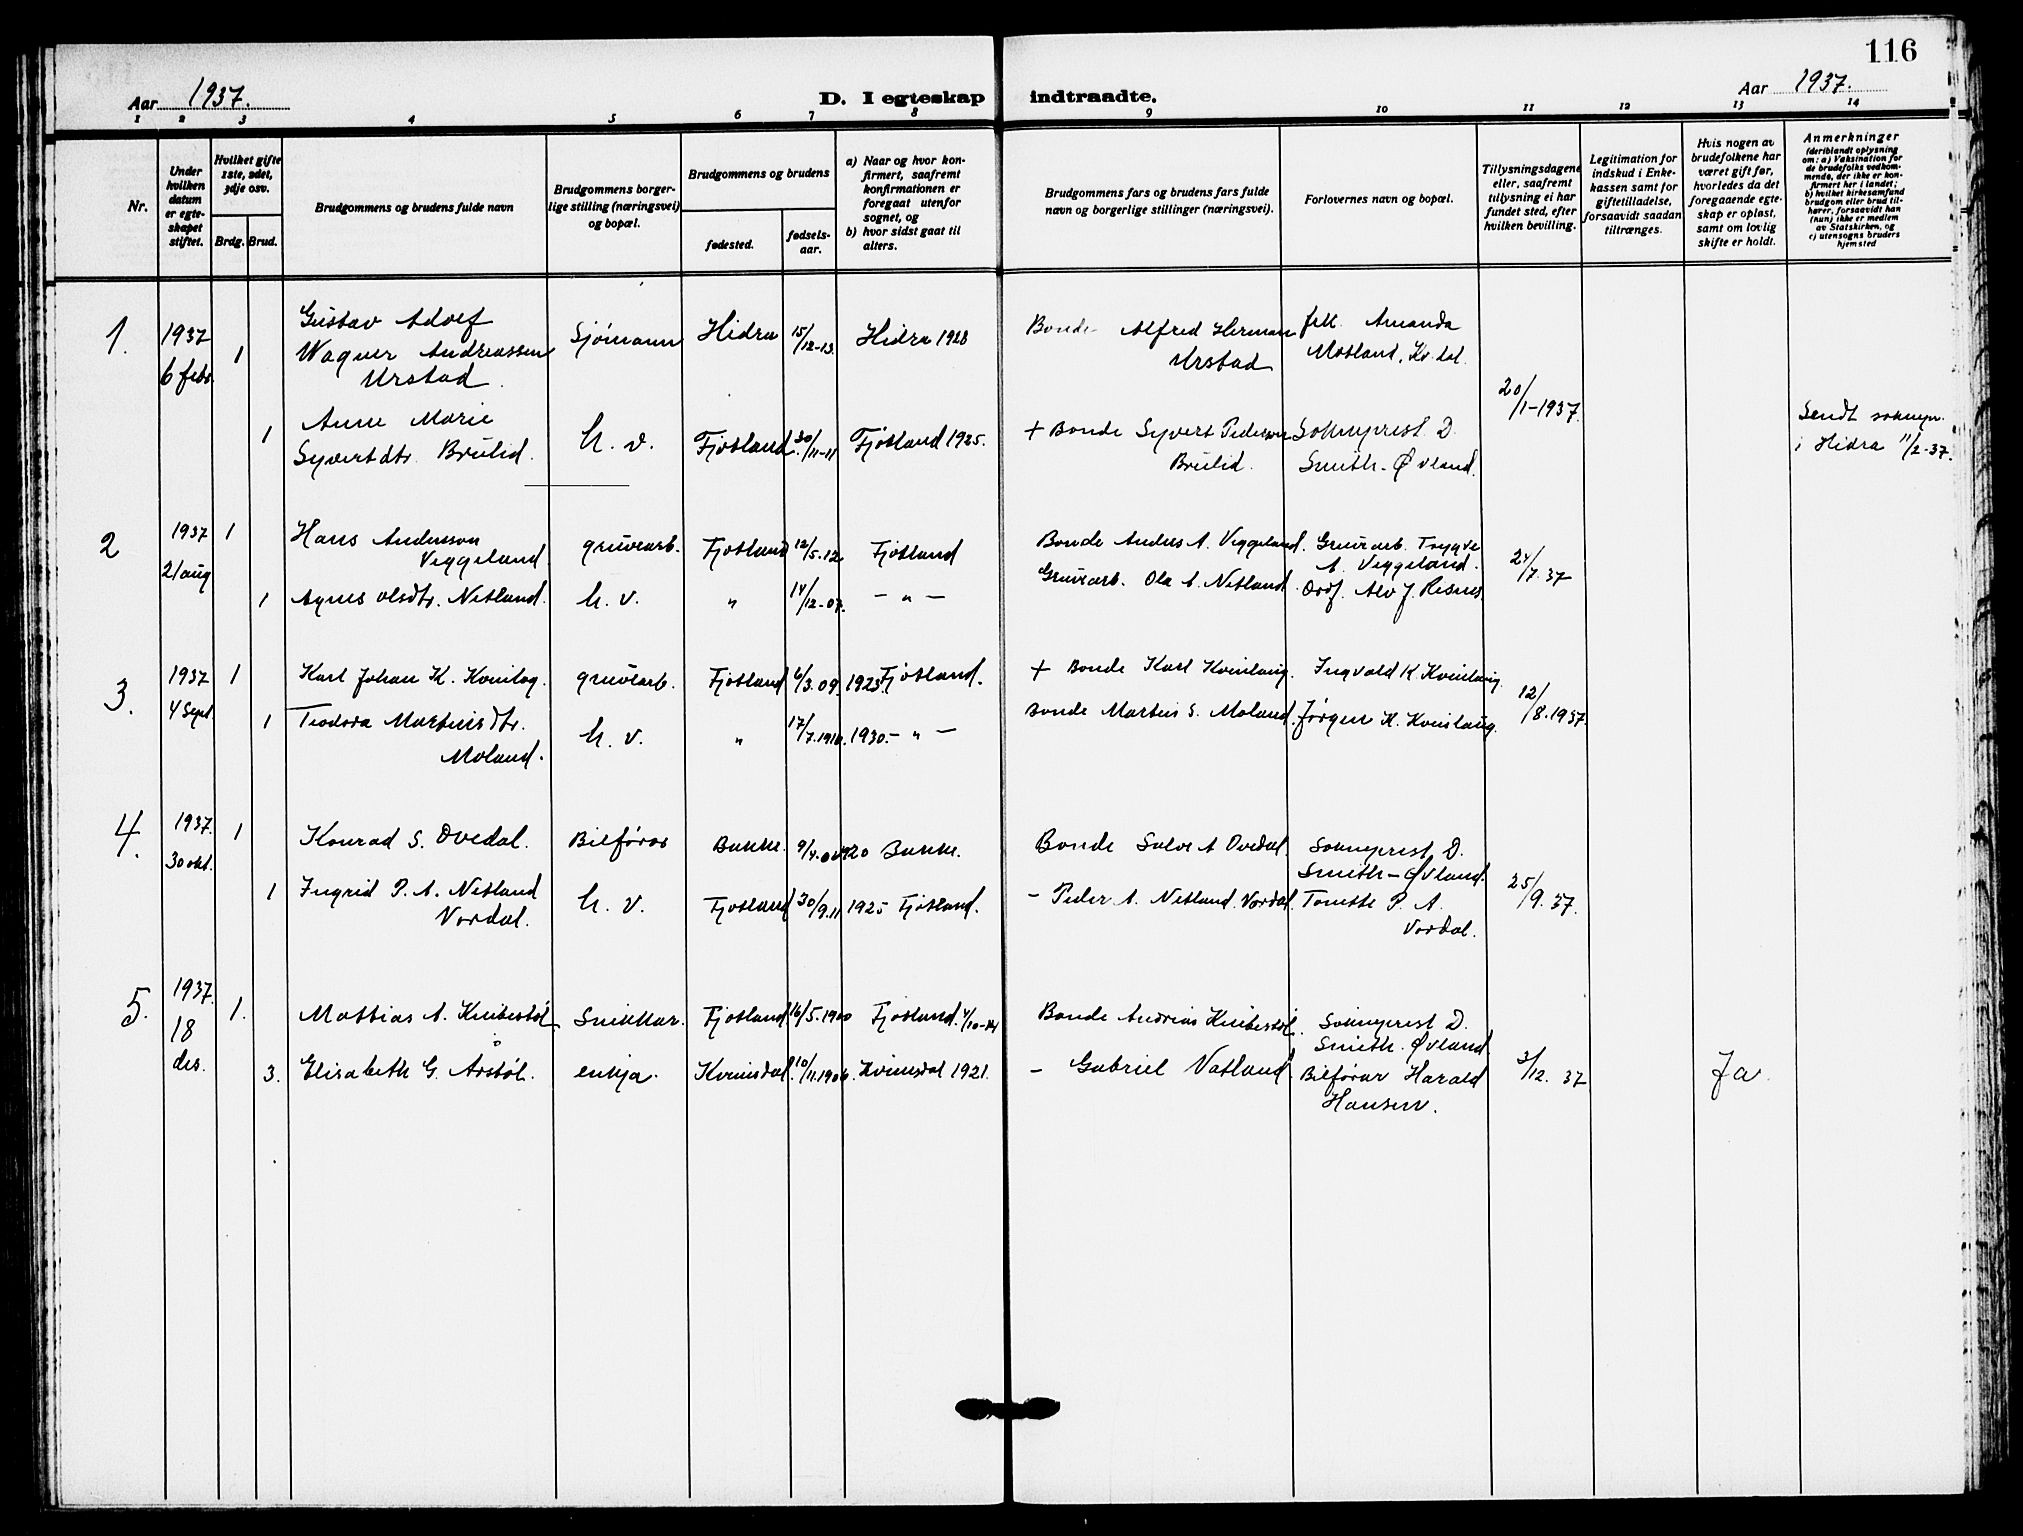 116
Aar 1937.
D. I egteskap indtraadte.
Aar 1937.
1 2 3 4 5 6 7 8 9 10 11 12 13 14
Nr.
Under
hvilken
datum
er egte-
skapet
stiftet.
Hvilket gifte
1ste, 2det,
3dje osv.
Brdg. Brud.
Brudgommens og brudens fulde navn
Brudgommens borger-
lige stilling (næringsvei)
og bopæl.
Brudgommens og brudens
fødested.
fødsels-
aar.
a) Naar og hvor kon-
firmert, saafremt
konfirmationen er
foregaat utenfor
sognet, og
b) hvor sidst gaat til
alters.
Brudgommens fars og brudens fars fulde
navn og borgerlige stillinger (næringsvei).
Forlovernes navn og bopæl.
Tillysningsdagene
eller, saafremt
tillysning ei har
fundet sted, efter
hvilken bevilling.
Legitimation for
indskud i Enke-
kassen samt for
giftetilladelse,
forsaavidt saadan
tiltrænges.
Hvis nogen av
brudefolkene har
været gift før,
hvorledes da det
foregaaende egte-
skap er opløst,
samt om lovlig
skifte er holdt.
Anmerkninger
(deriblandt oplysning
om: a) Vaksination for
de brudefolks vedkom-
mende, der ikke er kon-
firmert her i landet;
b) hvilket kirkesamfund
brudgom eller brud til-
hører, forsaavidt han
(hun) ikke er medlem
av Statskirken, og
c) utensogns bruders
hjemsted
1. 1937 6 febr. 1 Gustav Adolf
Wagner Andreassen
Urstad.
Sjømann Hidra 15/12-13. Hidra 1928
Bonde Alfred Herman
Urstad
frk. Amanda
Mosland, Kv.dal.
20/1-1937.
1 Anne Marie
Syvertdtr. Brulid.
h. v. Fjotland 30/11-11 Fjotland 1925.
+ Bonde Syvert Pederson
Brulid.
Sokneprest D.
Smith-Øvland.
Sendt soknepr.
i Hidra 11/2-37.
2 1937 21 aug 1 Hans Andersson
Veggeland.
gruvearb. Fjotland 12/5-12 Fjotland
Bonde Anders A. Veggeland.
Gruvearb. Trygve
A. Veggeland.
24/7.37
1 Agnes Olsdtr. Netland. h. v. " 14/12-07. - " -
Gruvearb. Ola A. Netland. Ordf. Alv J. Risnes
3. 1937 4 Sept. 1 Karl Johan K. Kvinlog. gruvearb. Fjotland 6/3.09 1923 Fjotland.
+ Bonde Karl Kvinlaug. Ingvald K Kvinlaug.
12/8.1937.
1 Teodora Martinsdtr.
Moland.
h. v. " 17/7.1916. 1930. - " -
Bonde Martin S. Moland. Jørgen K. Kvinlaug.
4. 1937. 30 okt. 1 Konrad S. Ovedal. Bilførar Bakke. 9/4-04 1920 Bakke.
Bonde Salve A Ovedal. Sokneprest D.
Smith-Øvland.
25/9.37.
1 Ingrid P. A. Netland
Vordal.
h. v. Fjotland 30/9.11 1925 Fjotland.
- Peder A. Netland. Vordal. Tomette P. A.
Vordal.
5. 1937. 18 des. 1. Mattias A. Knibestøl Snikkar. Fjotland 16/5.1900 Fjotland. 4/10-14
Bonde Andreas Knibestøl. Sokneprest D.
Smith-Øvland.
3/12.37
3. Elisabeth G. Årstøl. enkja. Kvinesdal. 10/11.1906. Kvinesdal 1921.
- Gabriel Vatland Bilførar Harald
Hansen.
Ja.